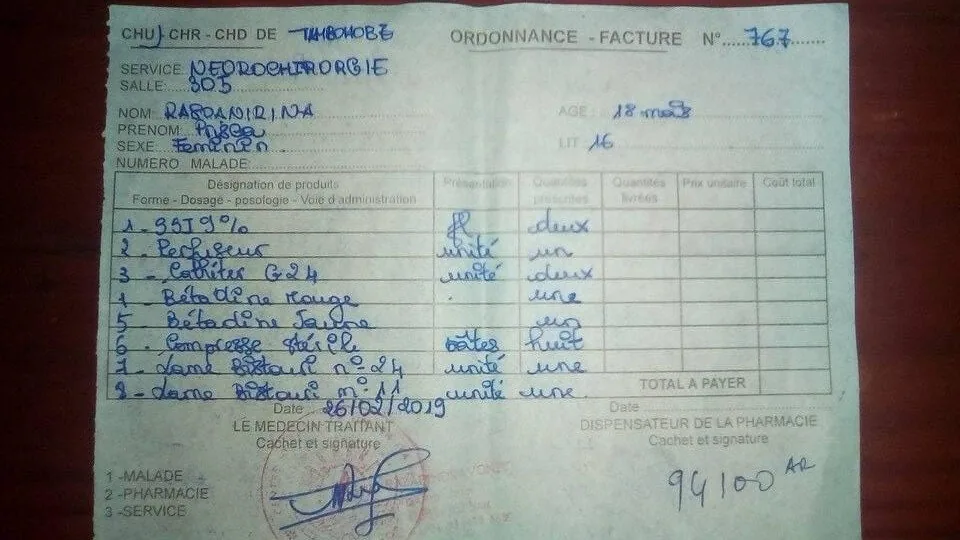 CHU CHR - CHD DE TAMBOHOBE
ORDONNANCE - FACTURE N° 767
SERVICE NEUROCHIRURGIE
SALLE: 305
NOM: RASOANIRINA AGE: 18 mois
PRENOM
SEXE Feminin LIT 16
NUMERO MALADE
Désignation de produits Présentation Quantités Quantités Prix unitaire Coût total
Forme - Dosage - posologie - Voie d'administration prescrites livrées
1 - SSI 9% fl deux
2 - Perfuseur unité un
3 - Cathéter G24 unité deux
1 - Bétadine rouge . une
5 - Bétadine Jaune un
6 - Compresse stérile boîtes huit
7 - Lame Bistouri n° 24 unité une
8 - Lame Bistouri n° 11 unité une
TOTAL A PAYER
Date 26/02/2019 Date
LE MEDECIN TRAITANT DISPENSATEUR DE LA PHARMACIE
Cachet et signature Cachet et signature
1 -MALADE
2 -PHARMACIE
3 -SERVICE
94100 AR